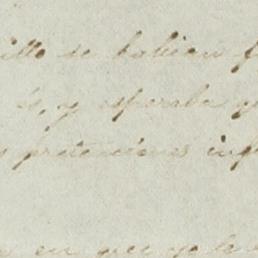 illo se batiean f
is, y esperaba q
s pretenciones inf
en que ya le